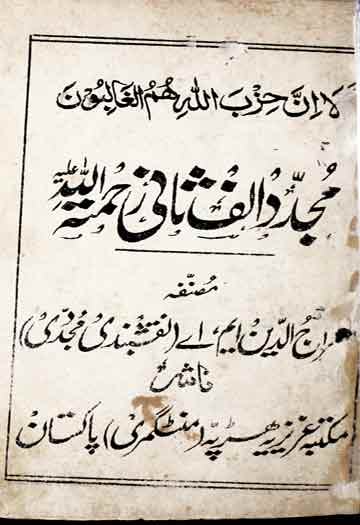 لا اِنَّ حِزْبَ اللهِ هُمُ الغَالِبُونَ
مُجدّد الف ثانی رحمتہ اللہ علیہ
مصنّفہ
الدّین ایم، اے (نقشبندی مجدّدی)
ناشر
مکتبہ عزیزیہ ہڑپہ (منٹگمری) پاکستان